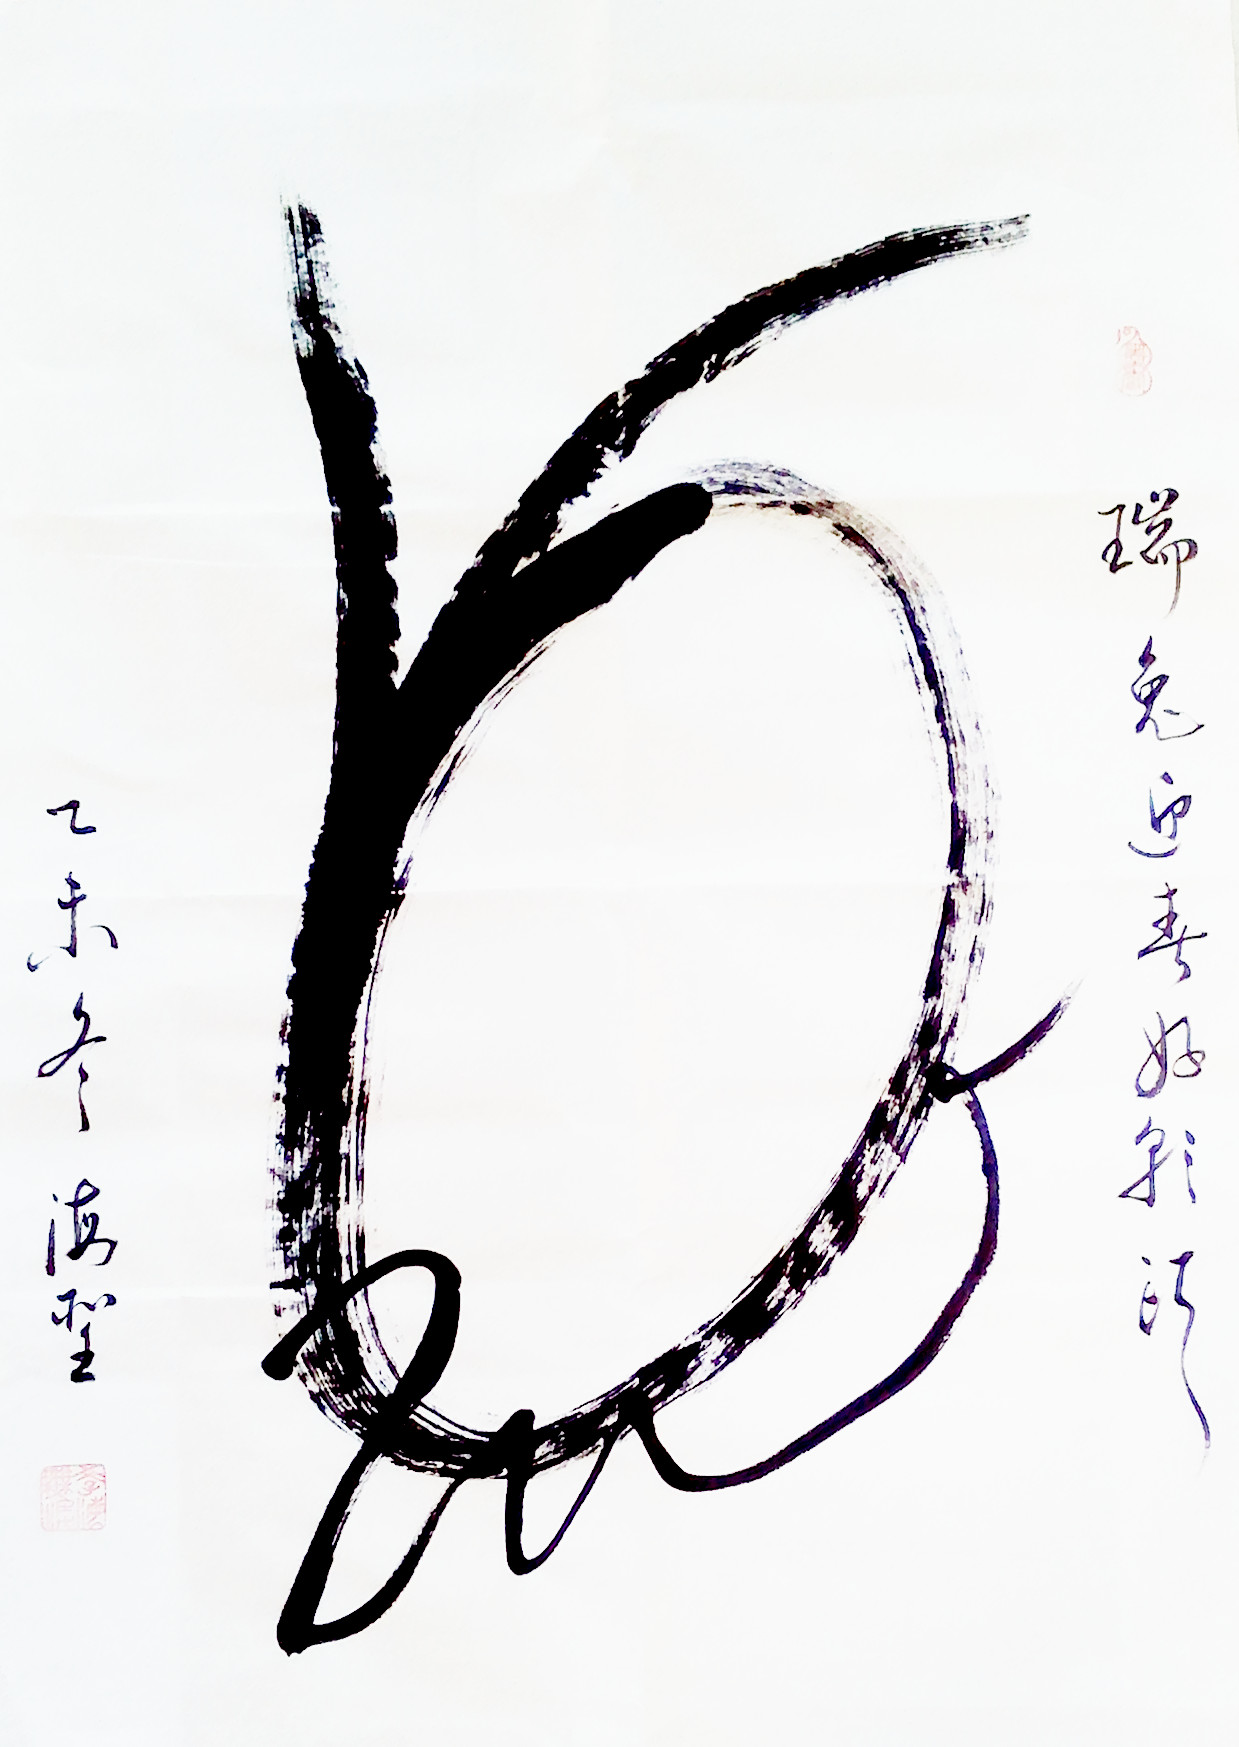 瑞兔迎春好彩头
乙未冬 海聖